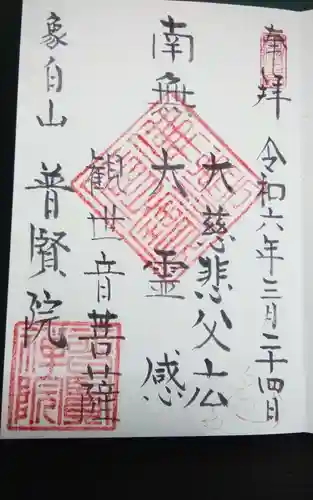 奉拝
令和六年三月二十四日
南無大霊感
大慈悲父広
観世音菩薩
象白山
普賢院